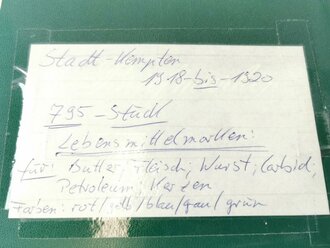 Stadt-Kempten
1918-bis-1920
795-Stück
Lebensmittelmarken:
für: Butter, Fleisch; Wurst; Carbid;
Petroleum; Kerzen
Farben: rot/gelb/blau/grau/grün